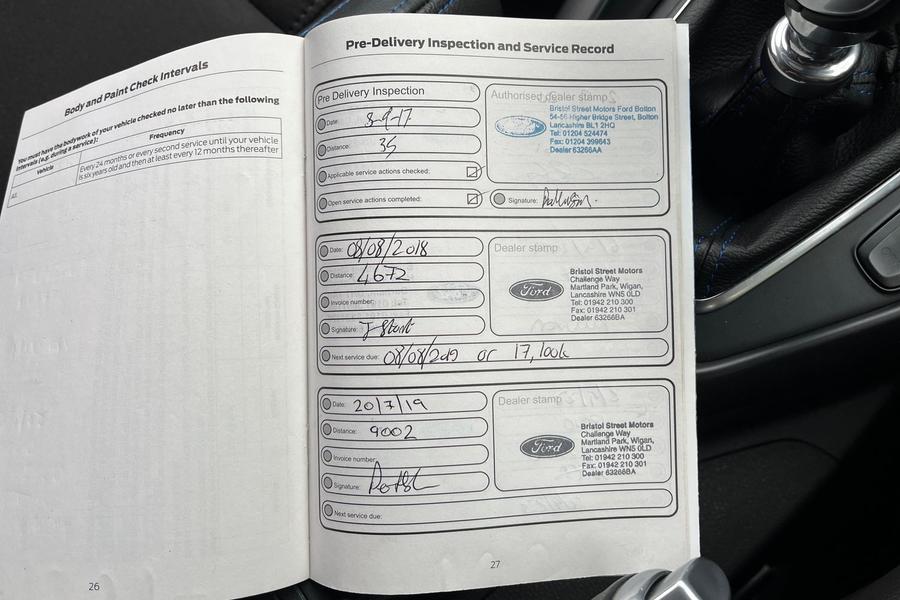 Body and Paint Check Intervals
You must have the bodywork of your vehicle checked no later than the following
intervals (e.g. during a service):
Vehicle
Frequency
All
Every 24 months or every second service until your vehicle
is six years old and then at least every 12 months thereafter
26
Pre-Delivery Inspection and Service Record
Pre Delivery Inspection
Date: 8-9-17
Distance: 35
Applicable service actions checked:
Open service actions completed:
Authorised dealer stamp
Bristol Street Motors Ford Bolton
54-56 Higher Bridge Street, Bolton
Lancashire BL1 2HQ
Tel: 01204 524474
Fax: 01204 399643
Dealer 63266AA
Signature:
Date: 08/08/2018
Distance: 4672
Invoice number:
Signature:
Next service due: 08/08/2019 or 17,100k
Dealer stamp
Ford
Bristol Street Motors
Challenge Way
Martland Park, Wigan,
Lancashire WN5 0LD
Tel: 01942 210 300
Fax: 01942 210 301
Dealer 63266BA
Date: 20/7/19
Distance: 9002
Invoice number:
Signature:
Next service due:
Dealer stamp
Ford
Bristol Street Motors
Challenge Way
Martland Park, Wigan,
Lancashire WN5 0LD
Tel: 01942 210 300
Fax: 01942 210 301
Dealer 63266BA
27